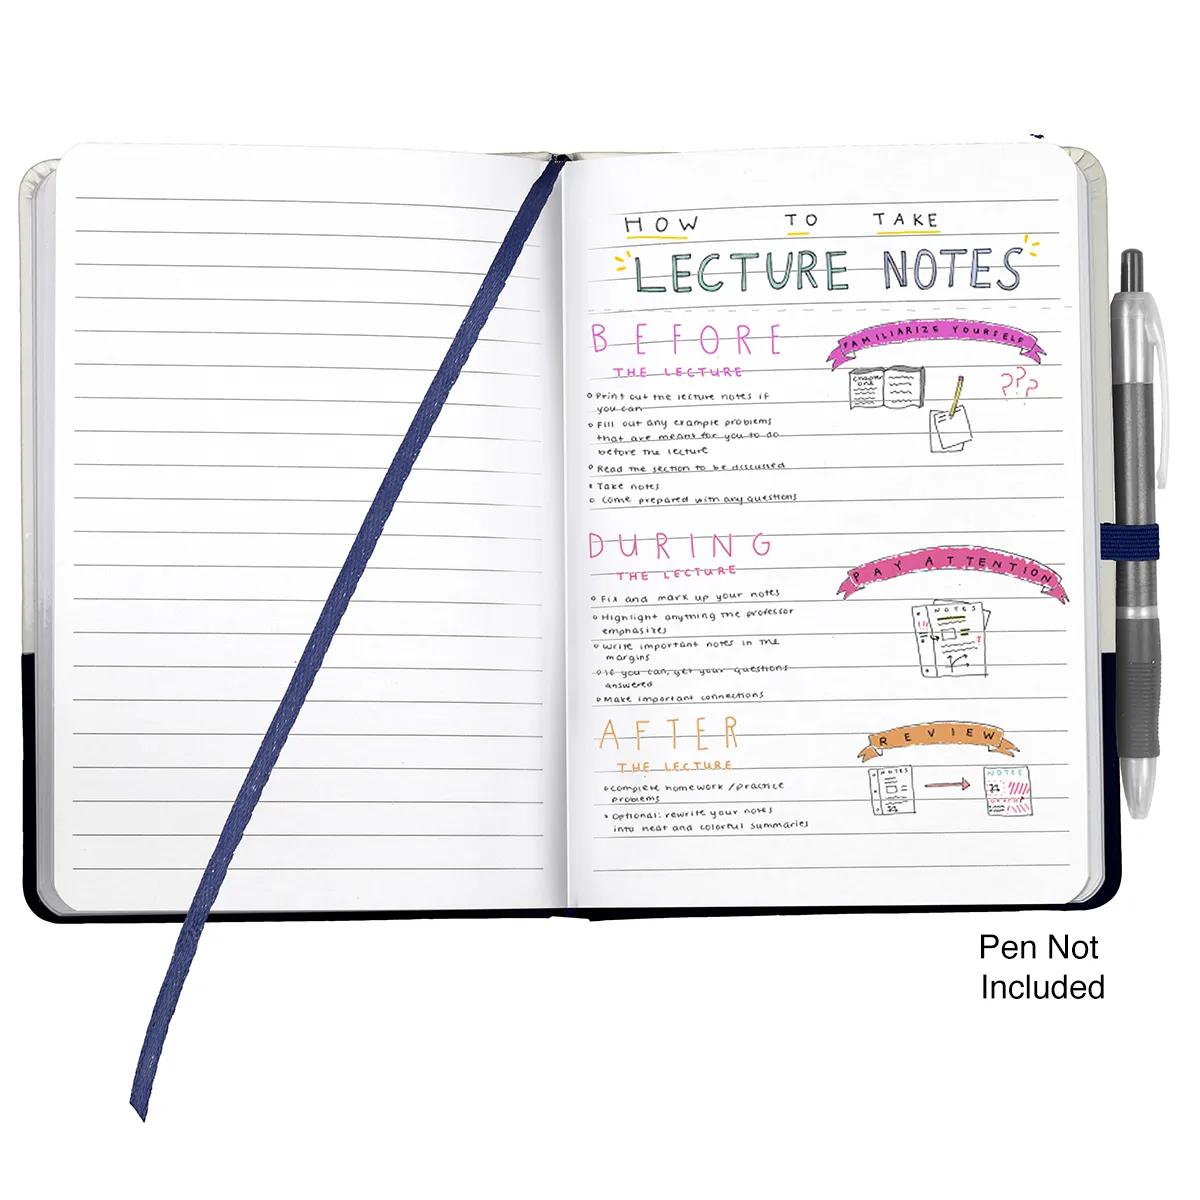 HOW TO TAKE
LECTURE NOTES
BEFORE
THE LECTURE
FAMILIARIZE YOURSELF
Print out the lecture notes if
you can
Fill out any example problems
that are meant for you to do
before the lecture
Read the section to be discussed
Take notes
Come prepared with any questions
chapter
one
???
DURING
THE LECTURE
PAY ATTENTION
Fix and mark up your notes
Highlight anything the professor
emphasizes
Write important notes in the
margins
If you can, get your questions
answered
Make important connections
NOTES
AFTER
THE LECTURE
REVIEW
Complete homework/practice
problems
Optional: rewrite your notes
into neat and colorful summaries
NOTES
NOTES
Pen Not
Included